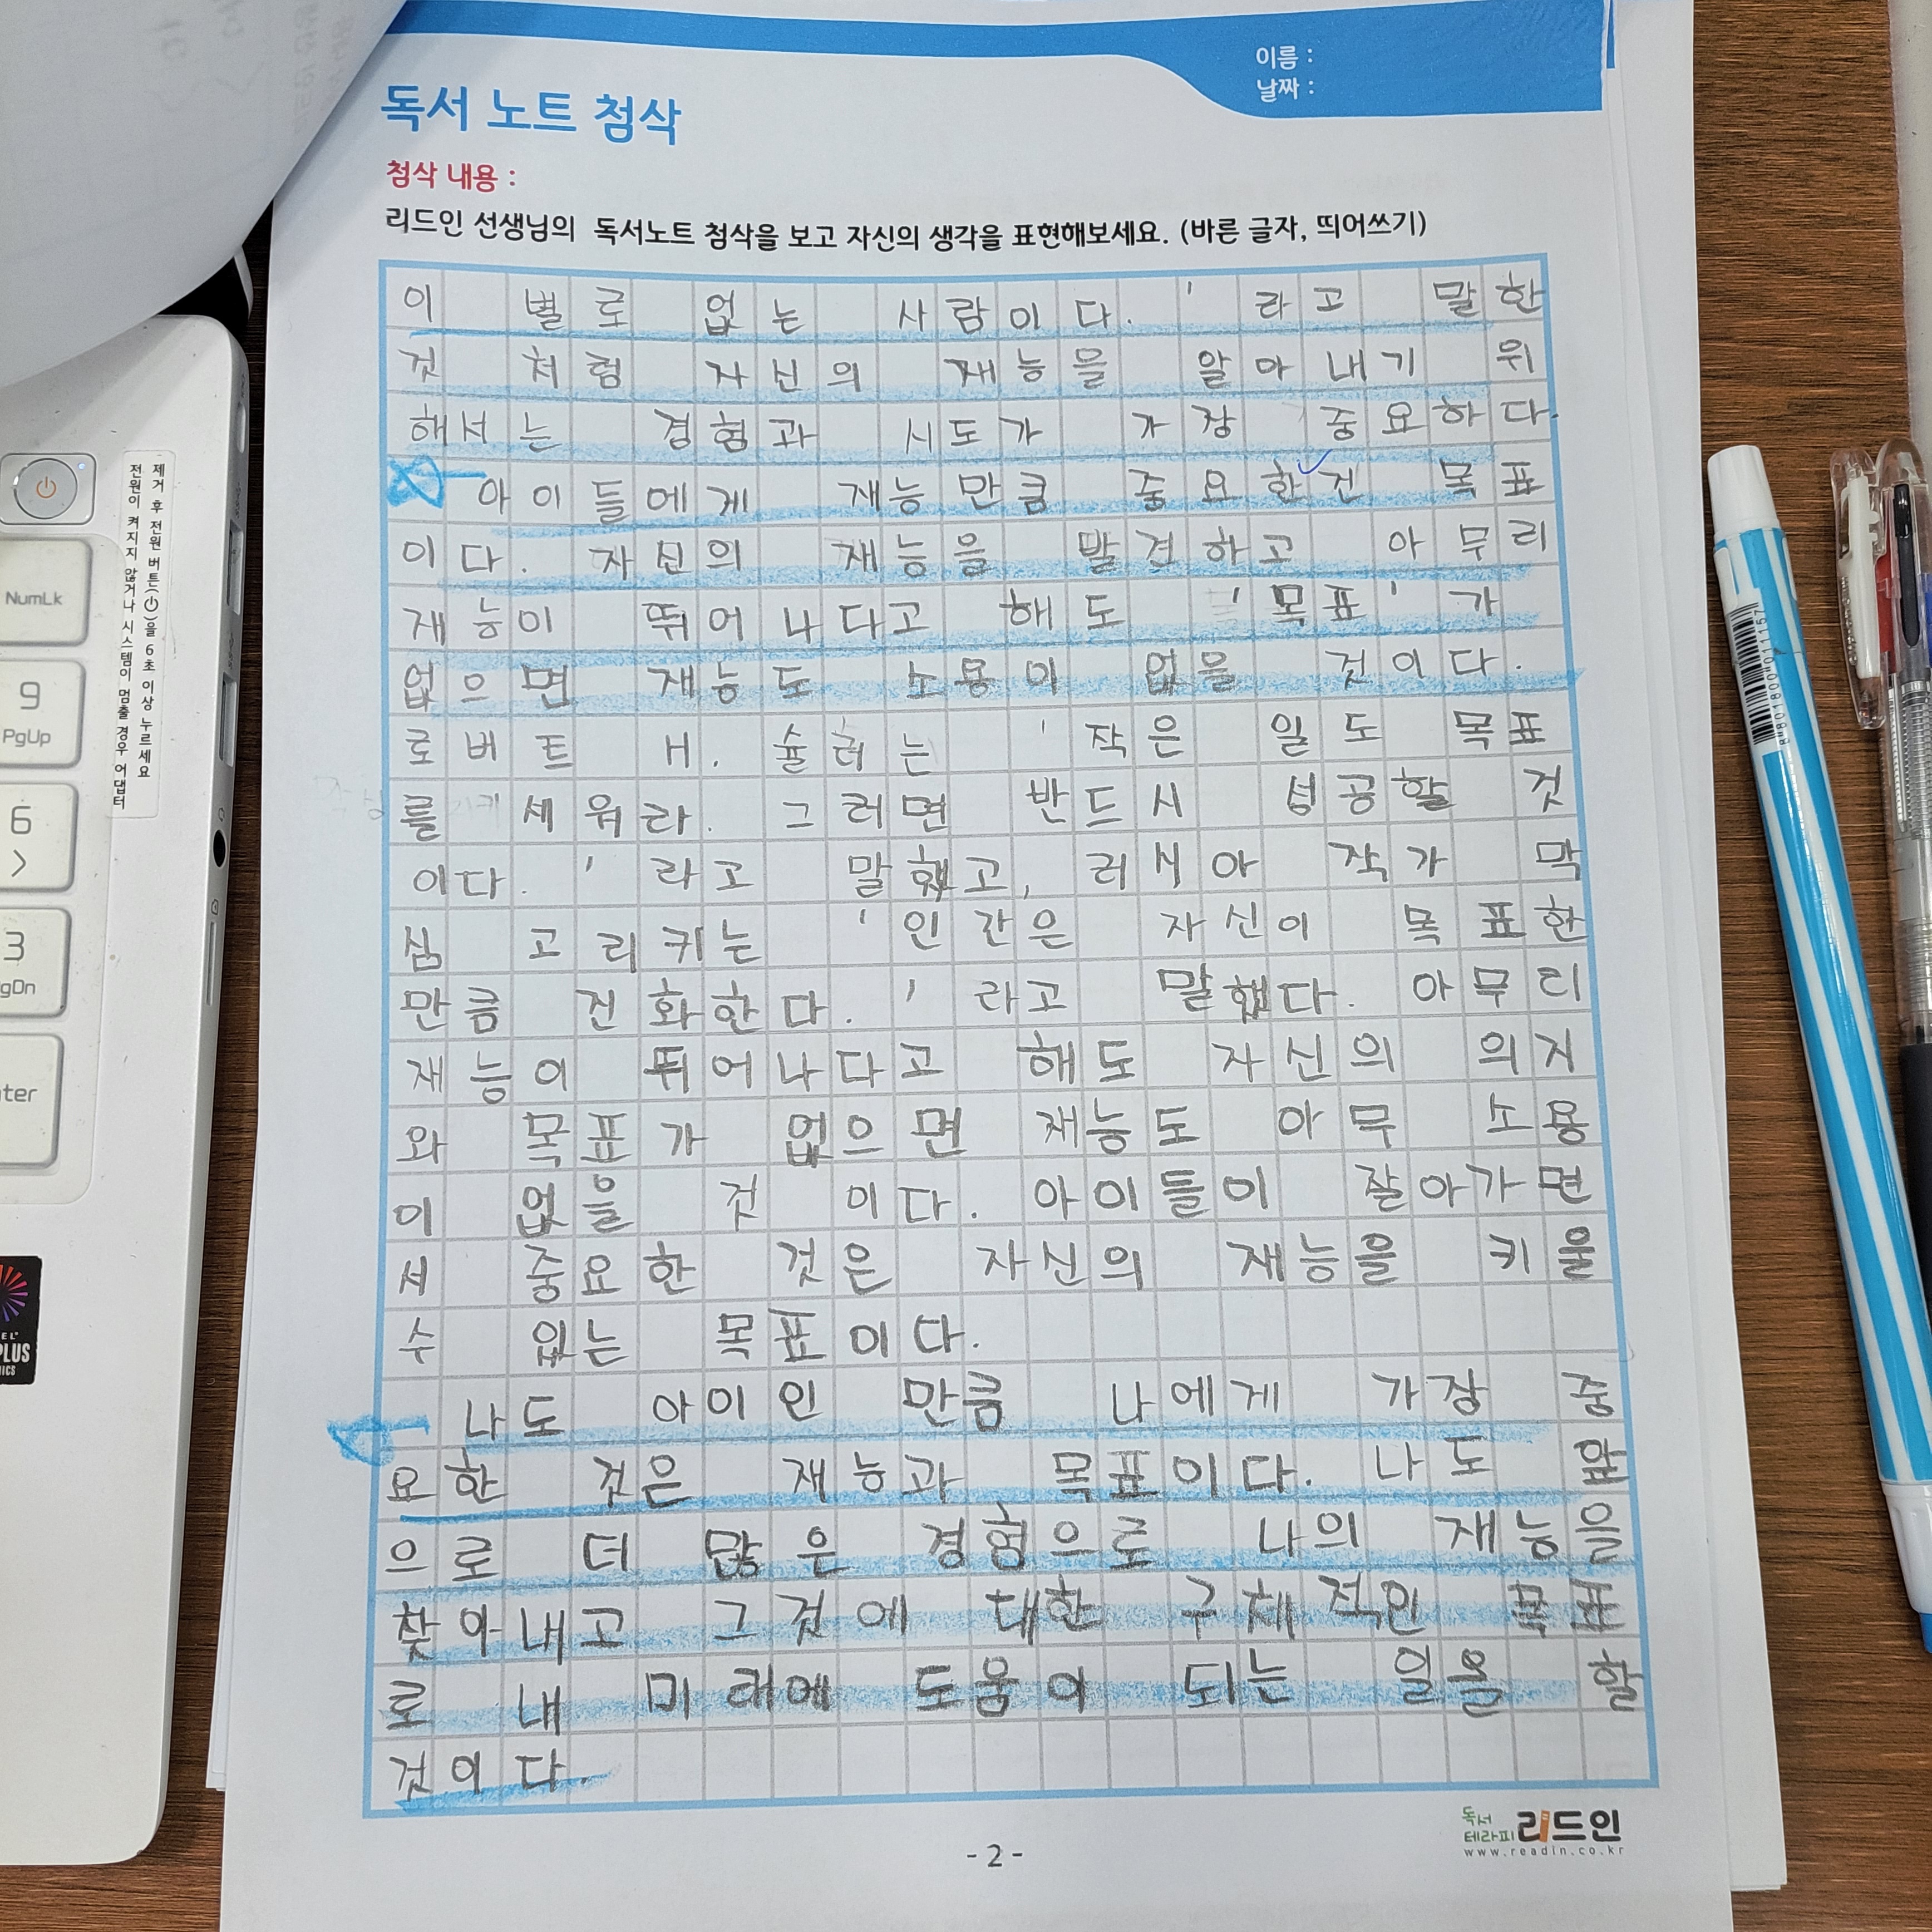 이름 :
날짜 :
독서 노트 첨삭
첨삭 내용 :
리드인 선생님의 독서노트 첨삭을 보고 자신의 생각을 표현해보세요. (바른 글자, 띄어쓰기)
이 별로 없는 사람이다. ' 라고 말한
것 처럼 자신의 재능을 알아내기 위
해서는 경험과 시도가 가장 중요하다.
아이들에게 재능만큼 중요한건 목표
이다. 자신의 재능을 발견하고 아무리
재능이 뛰어나다고 해도 '목표' 가
없으면 재능도 소용이 없을 것이다.
로버트 H. 슐러는 '작은 일도 목표
를 세워라. 그러면 반드시 성공할 것
이다. ' 라고 말했고, 러시아 작가 막
심 고리키는 '인간은 자신이 목표한
만큼 진화한다. ' 라고 말했다. 아무리
재능이 뛰어나다고 해도 자신의 의지
와 목표가 없으면 재능도 아무 소용
이 없을 것 이다. 아이들이 잘아가면
서 중요한 것은 자신의 재능을 키울
수 있는 목표이다.
나도 아이인 만큼 나에게 가장 중
요한 것은 재능과 목표이다. 나도 앞
으로 더 많은 경험으로 나의 재능을
찾아내고 그것에 대한 구체적인 목표
로 내 미래에 도움이 되는 일을 할
것이다.
- 2 -
독서
테라피 리드인
www.readin.co.kr
제거 후 전원 버튼(⏻)을 6초 이상 누르세요
전원이 켜지지 않거나 시스템이 멈출 경우 어댑터
NumLk
9
PgUp
6
3
gDn
ter
PLUS
8"801800"011157